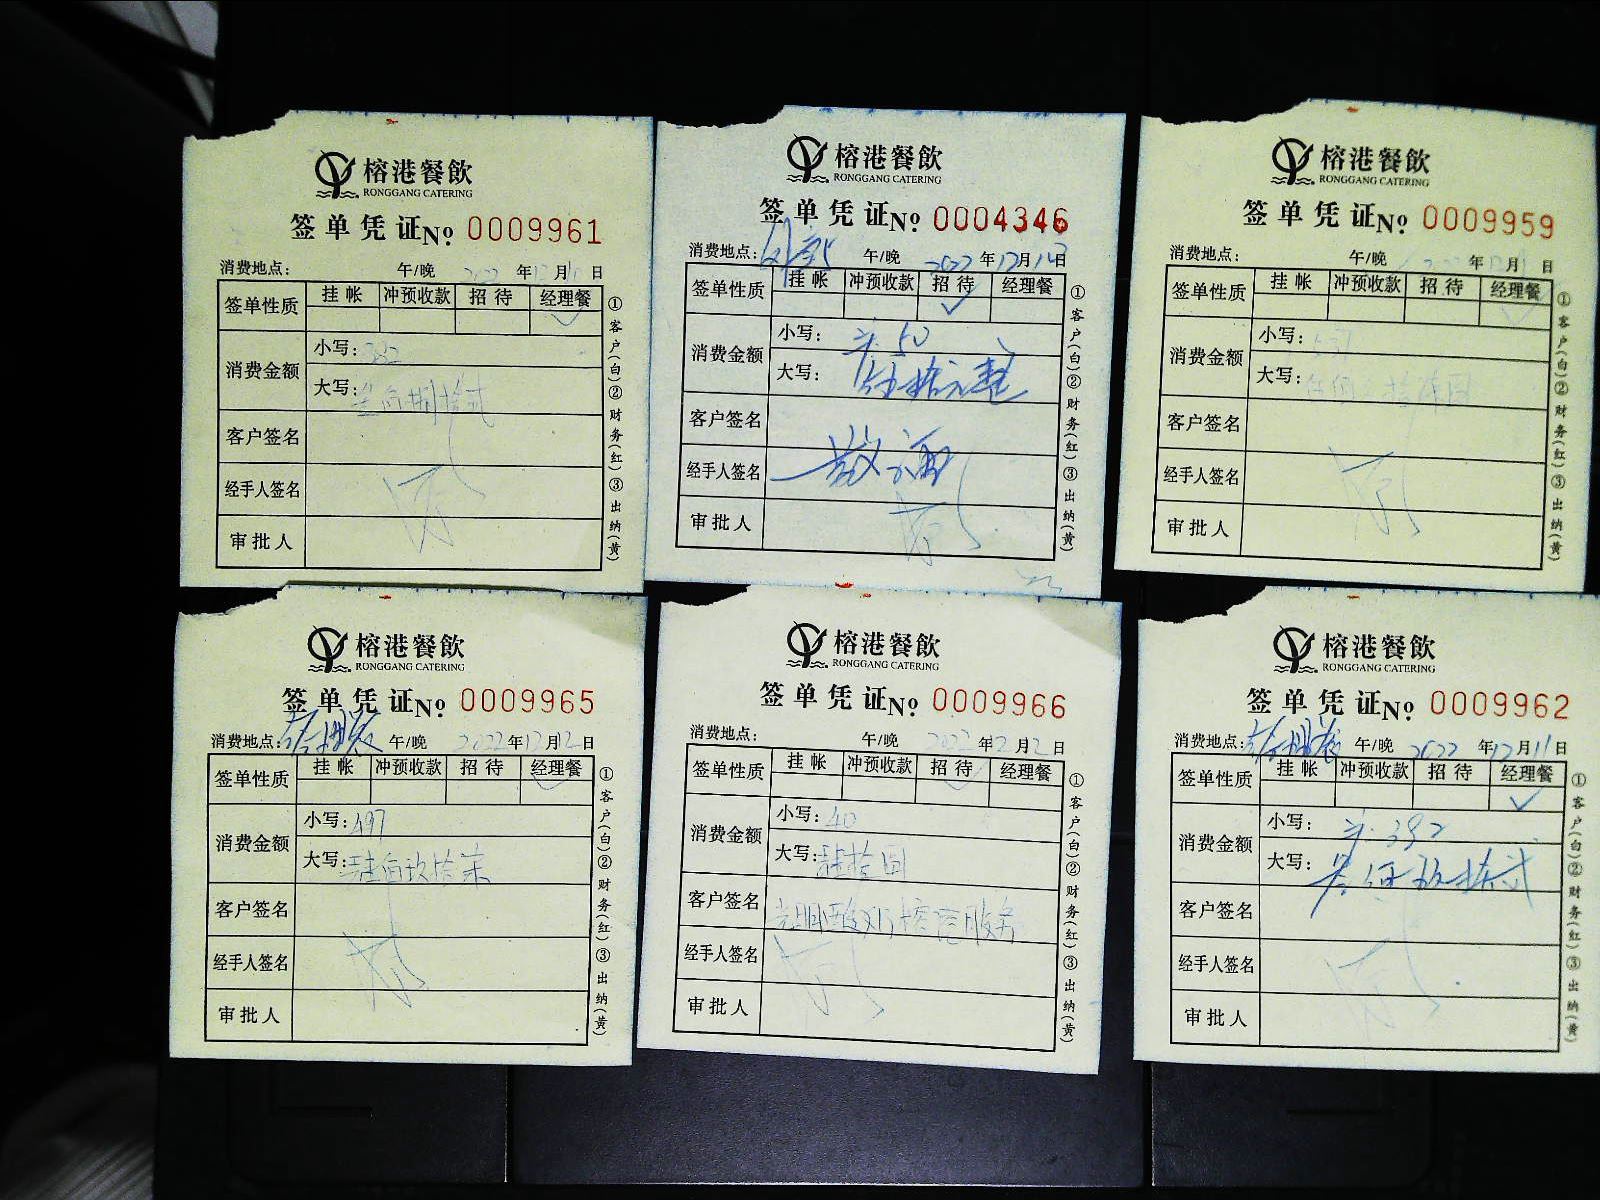 榕港餐飲
RONGGANG CATERING
签单凭证 No 0009961
消费地点: 午/晚 2022年12月 日
签单性质 挂帐 冲预收款 招待 经理餐
消费金额
小写: 382
大写: 叁佰捌拾贰
客户签名
经手人签名
审批人
①客户(白)②财务(红)③出纳(黄)
榕港餐飲
RONGGANG CATERING
签单凭证 No 0004346
消费地点: 午/晚 2022年12月12日
签单性质 挂帐 冲预收款 招待 经理餐
消费金额
小写: 50
大写: 伍拾元整
客户签名
经手人签名
审批人
①客户(白)②财务(红)③出纳(黄)
榕港餐飲
RONGGANG CATERING
签单凭证 No 0009959
消费地点: 午/晚 2022年12月11日
签单性质 挂帐 冲预收款 招待 经理餐
消费金额
小写:
大写:
客户签名
经手人签名
审批人
①客户(白)②财务(红)③出纳(黄)
榕港餐飲
RONGGANG CATERING
签单凭证 No 0009965
消费地点: 午/晚 2022年12月12日
签单性质 挂帐 冲预收款 招待 经理餐
消费金额
小写: 497
大写: 肆佰玖拾柒
客户签名
经手人签名
审批人
①客户(白)②财务(红)③出纳(黄)
榕港餐飲
RONGGANG CATERING
签单凭证 No 0009966
消费地点: 午/晚 2022年12月12日
签单性质 挂帐 冲预收款 招待 经理餐
消费金额
小写: 40
大写: 肆拾圆
客户签名
经手人签名
审批人
①客户(白)②财务(红)③出纳(黄)
榕港餐飲
RONGGANG CATERING
签单凭证 No 0009962
消费地点: 午/晚 2022年12月11日
签单性质 挂帐 冲预收款 招待 经理餐
消费金额
小写: 392
大写: 叁佰玖拾贰
客户签名
经手人签名
审批人
①客户(白)②财务(红)③出纳(黄)